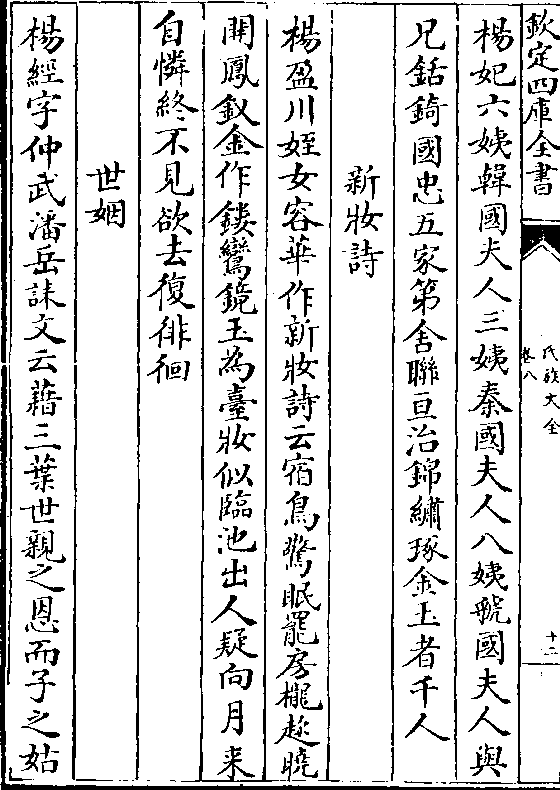 欽定四庫全書
氏族大全
卷八
十二
楊妃六姨韓國夫人三姨秦國夫人八姨虢國夫人與
兄銛錡國忠五家第舍聯亘治錦繡琢金玉者千人
新妝詩
楊盈川姪女容華作新妝詩云宿鳥驚眠罷房櫳趂曉
開鳳釵金作鏤鸞鏡玉為臺妝似臨池出人疑向月来
自憐終不見欲去復徘徊
世姻
楊經字仲武潘岳誄文云藉三葉世親之恩而子之姑